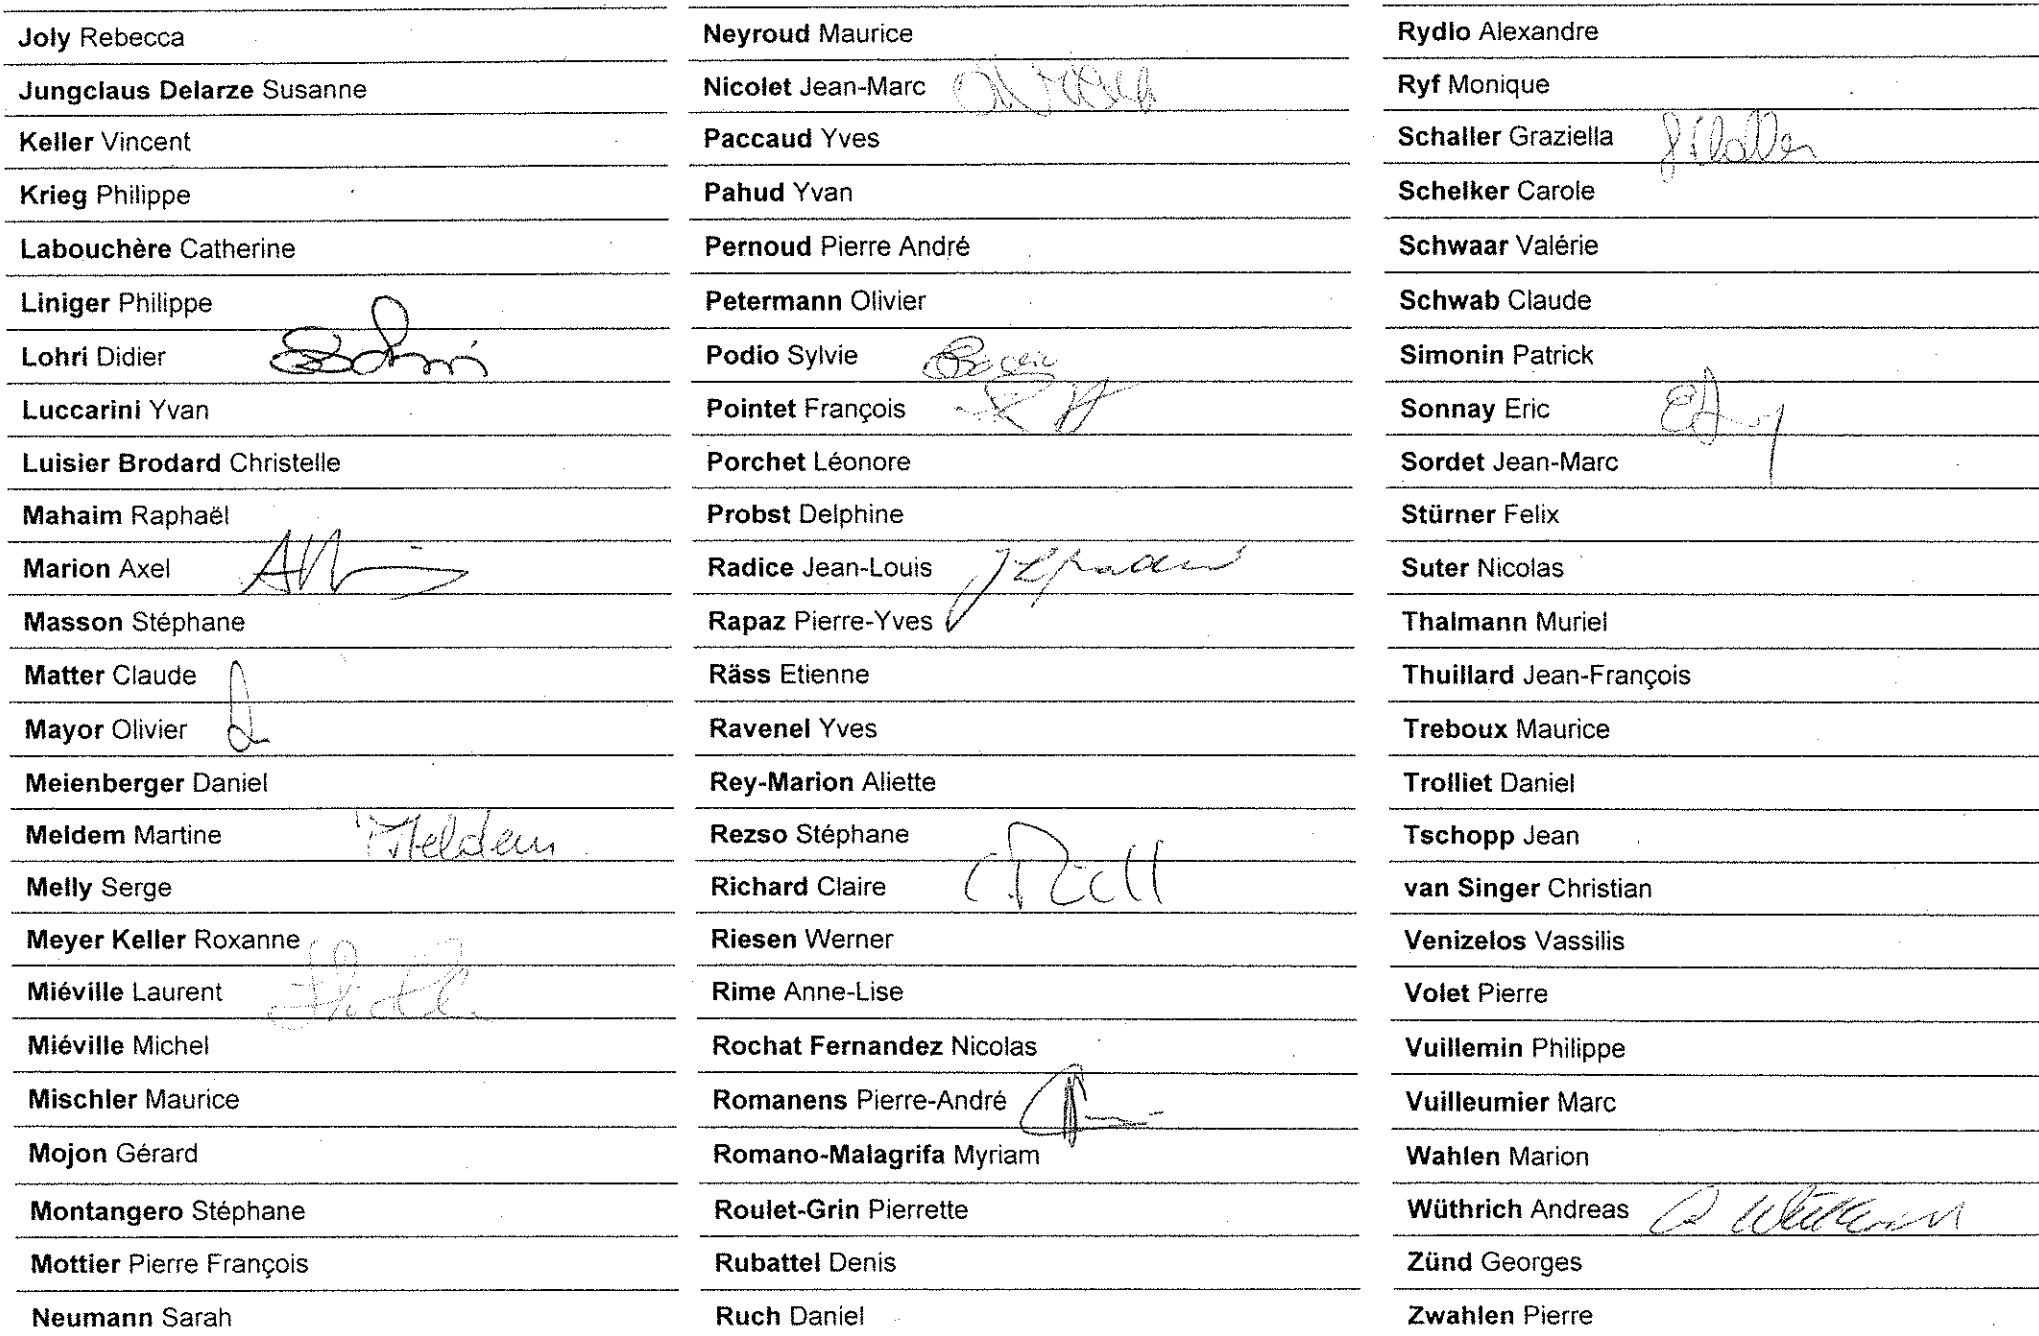 Joly Rebecca
Jungclaus Delarze Susanne
Keller Vincent
Krieg Philippe
Labouchère Catherine
Liniger Philippe
Lohri Didier
Luccarini Yvan
Luisier Brodard Christelle
Mahaim Raphaël
Marion Axel
Masson Stéphane
Matter Claude
Mayor Olivier
Meienberger Daniel
Meldem Martine Meldem
Melly Serge
Meyer Keller Roxanne
Miéville Laurent
Miéville Michel
Mischler Maurice
Mojon Gérard
Montangero Stéphane
Mottier Pierre François
Neumann Sarah
Neyroud Maurice
Nicolet Jean-Marc
Paccaud Yves
Pahud Yvan
Pernoud Pierre André
Petermann Olivier
Podio Sylvie
Pointet François
Porchet Léonore
Probst Delphine
Radice Jean-Louis
Rapaz Pierre-Yves
Räss Etienne
Ravenel Yves
Rey-Marion Aliette
Rezso Stéphane
Richard Claire
Riesen Werner
Rime Anne-Lise
Rochat Fernandez Nicolas
Romanens Pierre-André
Romano-Malagrifa Myriam
Roulet-Grin Pierrette
Rubattel Denis
Ruch Daniel
Rydlo Alexandre
Ryf Monique
Schaller Graziella
Schelker Carole
Schwaar Valérie
Schwab Claude
Simonin Patrick
Sonnay Eric
Sordet Jean-Marc
Stürner Felix
Suter Nicolas
Thalmann Muriel
Thuillard Jean-François
Treboux Maurice
Trolliet Daniel
Tschopp Jean
van Singer Christian
Venizelos Vassilis
Volet Pierre
Vuillemin Philippe
Vuilleumier Marc
Wahlen Marion
Wüthrich Andreas
Zünd Georges
Zwahlen Pierre